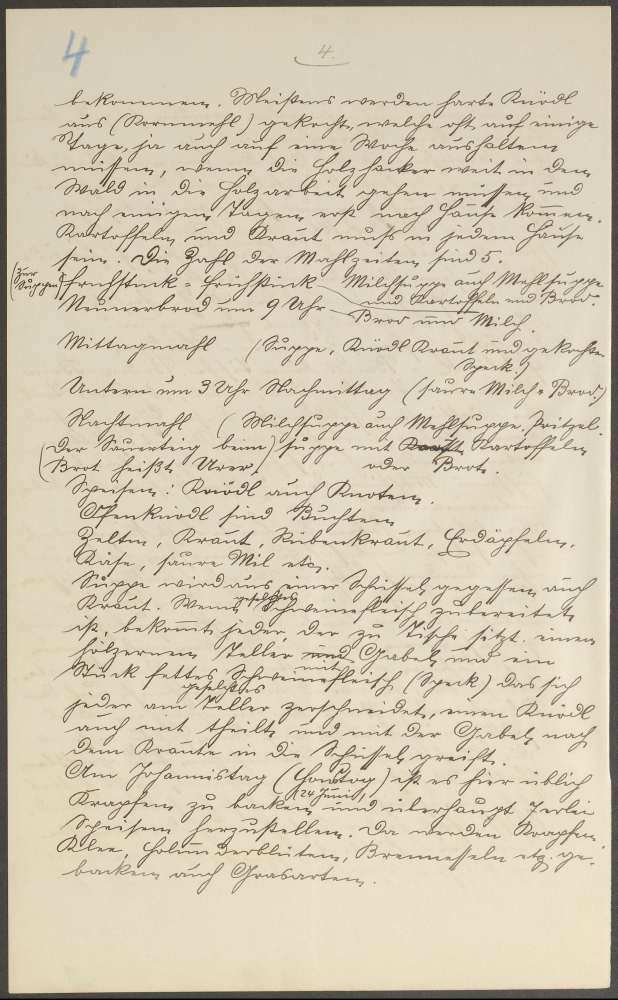 4
4.
bekommen. Meistens werden harte Knödl
aus (Kornmehl) gekocht, welche oft auf einige
Tage, ja auch auf eine Woche aushalten
müssen, wenn die Holzhacker weit in den
Wald in die Holzarbeit gehen müssen, und
nach einigen Tagen, erst nach Hause kommen.
Kartoffeln, und Kraut muß in jedem Hause
sein. Die Zahl der Mahlzeiten, sind 5.
(Zur Suppen) Fruhstuck = Frühstück Milchsuppe auch Mehlsuppe
und Kartoffeln und Brod.
Neunerbrod um 9 Uhr Brod und Milch.
Mittagmahl (Suppe, Knödl Kraut und gekochten
Speck.)
Untern um 3 Uhr Nachmittag (saure Milch = Brod.)
Nachtmahl (Milchsuppe auch Mehlsuppe.
(Der Sauerteig beim) suppe mit Kartoffeln,
(Brot heißt Urer.) oder Brot.
Speisen: Knödl auch Knoten.
Ofenknödl sind Buchten
Zelten, Kraut, Rübenkraut, Erdäpfeln,
Käse, saure Mil etc.
Suppe wird aus einer Schüssel, gegessen, auch
Kraut. Wenn geselchtes Schweinefleisch zubereitet
ist, bekommt jeder, der zu Tische sitzt einen
hölzernen Teller und Gabel, und ein
Stück fettes geselchtes Schweinefleisch (Speck) das sich
jeder am Teller zerschneidet, einen Knödl
auch mit theilt, und mit der Gabel, nach
dem Kraute in die Schüssel, greift.
Am Johannistag (24 Juni) ist es hier üblich
Krapfen, zu backen, und überhaupt
Speisen herzustellen. Da werden Krapfen,
Klee, Holunderblüten, Brennesseln etz. ge-
backen auch Grasarten.